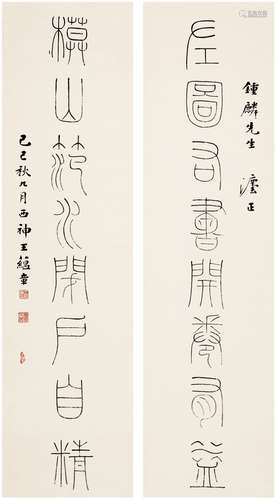 左圖右書開卷有益
鍾麟先生 灋正
模山范水閉戶自精
己巳秋九月西神王蘊章